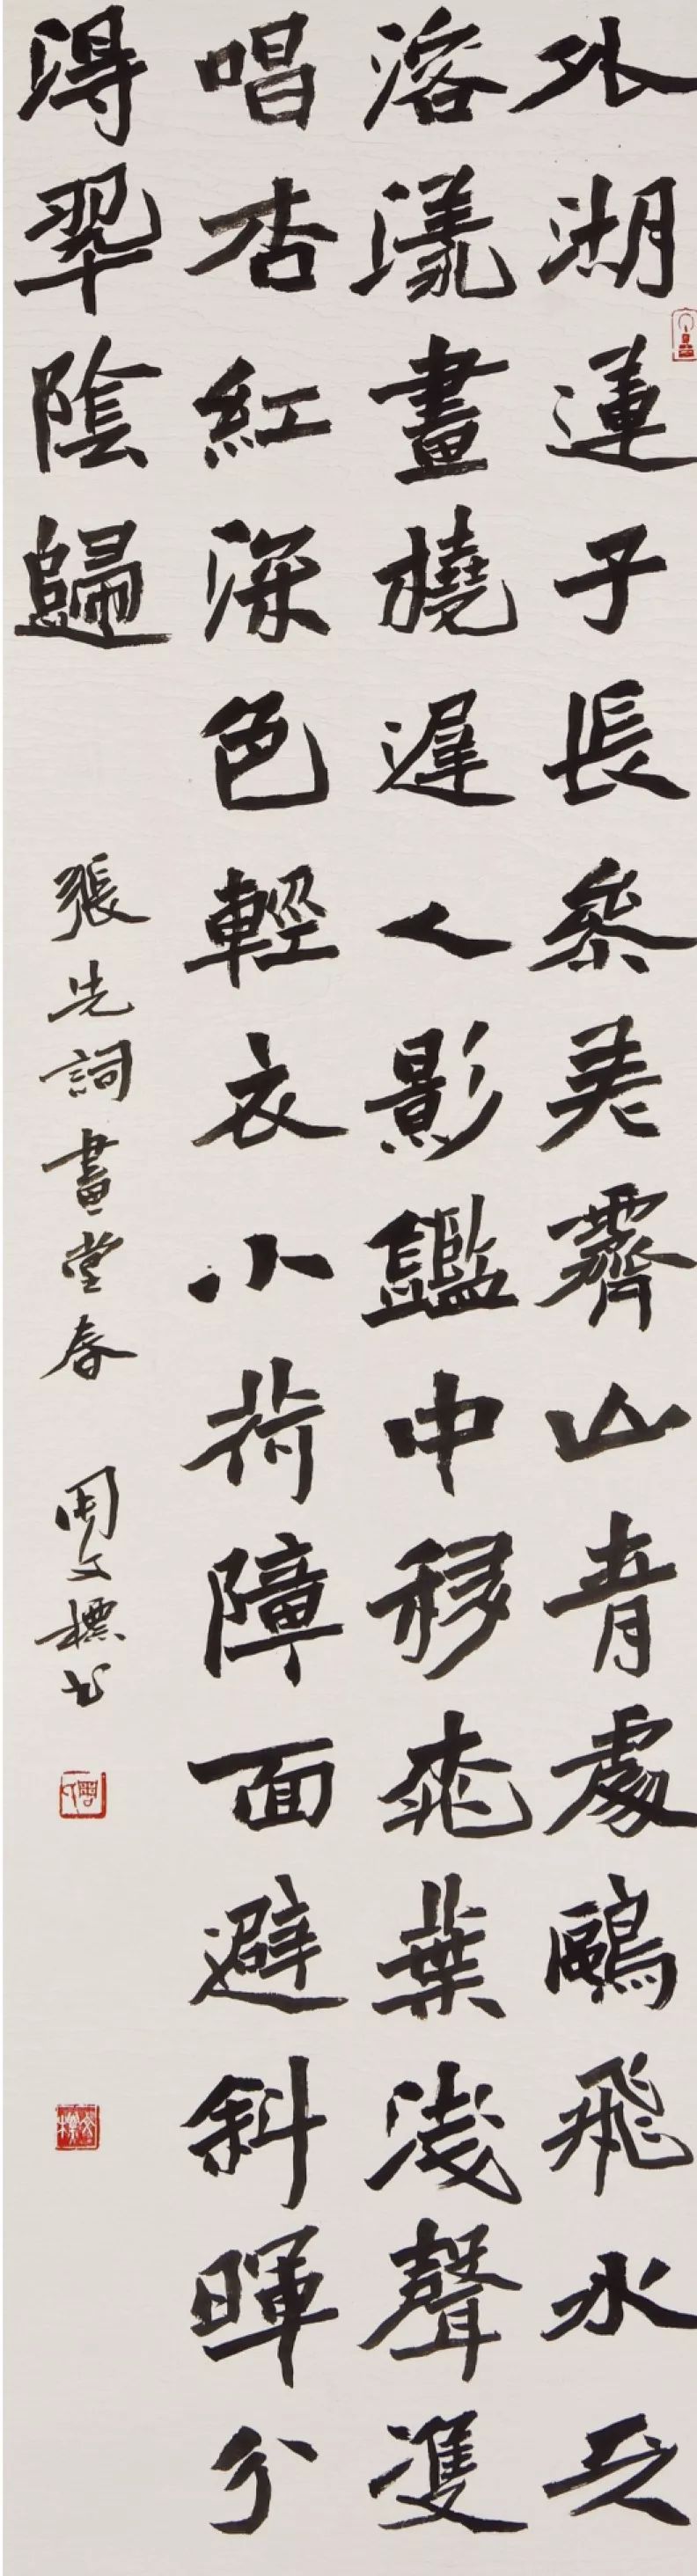 外湖蓮子長參差霽山青處鷗飛水天
溶漾畫橈遲人影鑑中移桃葉淺聲雙
唱杏紅深色輕衣小荷障面避斜暉分
得翠陰歸 張先詞畫堂春 周文標書